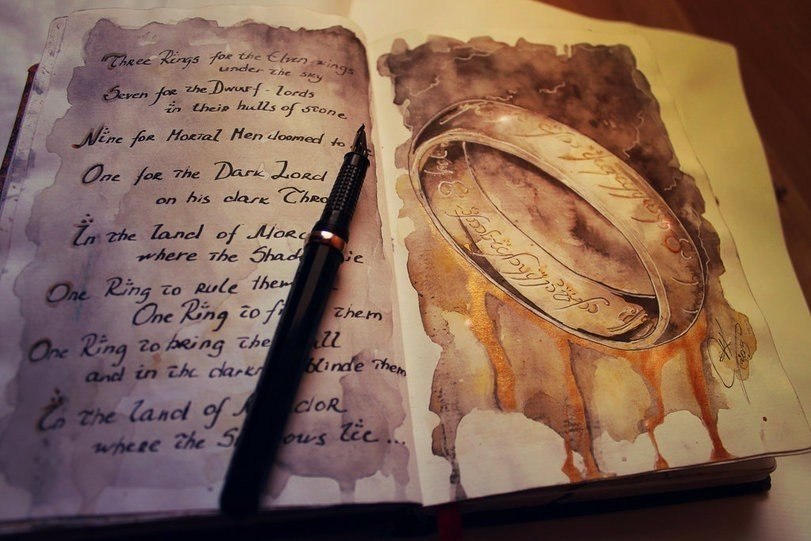 Three Rings for the Elven kings
under the sky
Seven for the Dwarf-lords
in their halls of stone
Nine for Mortal Men doomed to
One for the Dark Lord
on his dark Thro
In the land of Mor
where the Shad ie
One Ring to rule them
One Ring to fi them
One Ring to bring the all
and in the dark blinde them
In the land of M dor
where the S dows lie ...